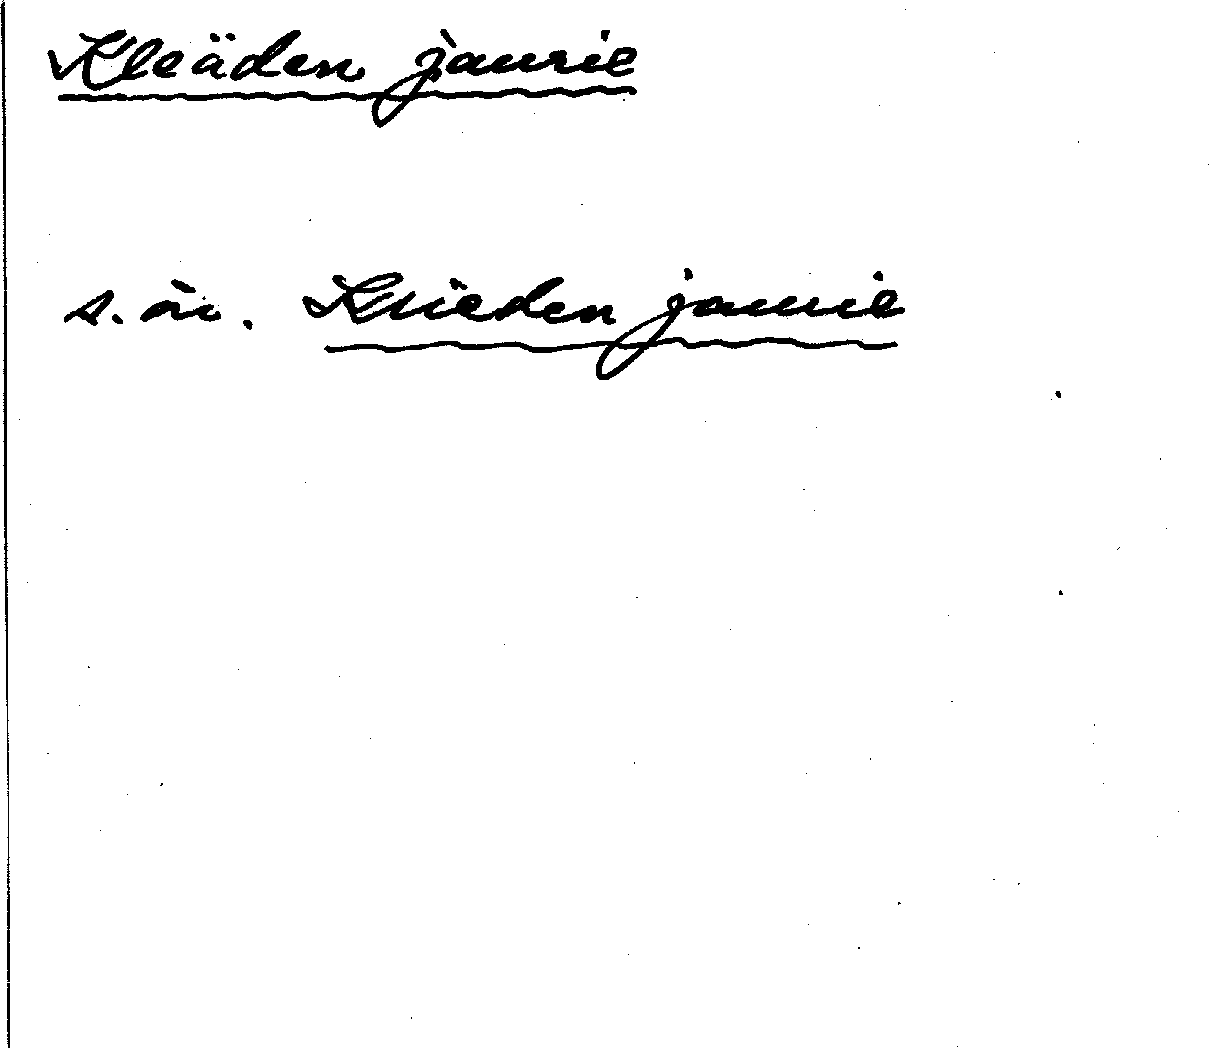 Kleäden jaurie
s. äv. Klieden jaurie